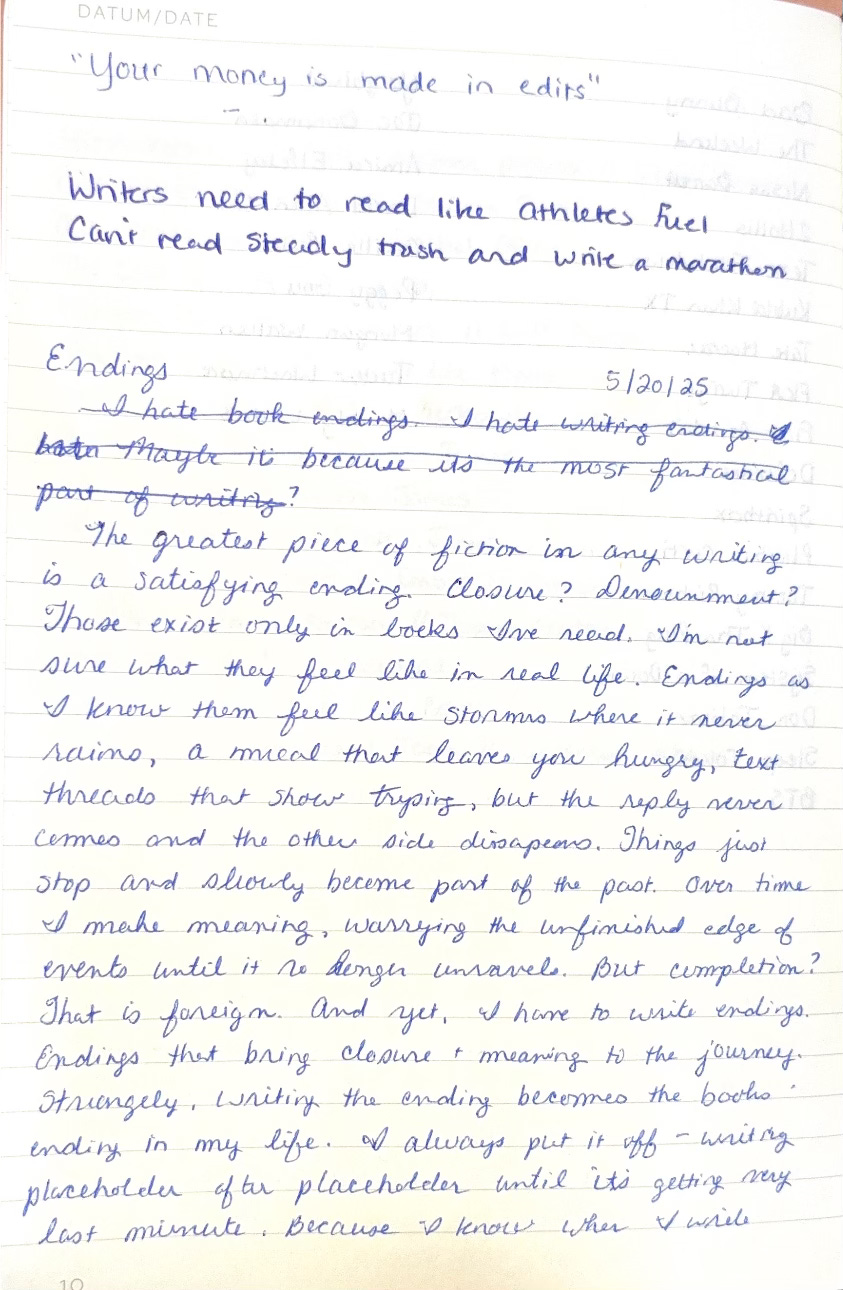 DATUM/DATE
"Your money is made in edits"
Writers need to read like athletes fuel
Can't read steady trash and write a marathon
Endings 5/20/25
I hate book endings. I hate writing endings. I
hate Maybe it because its the most fantastical
part of writing?
The greatest piece of fiction in any writing
is a satisfying ending. Closure? Denounment?
Those exist only in books I've read. I'm not
sure what they feel like in real life. Endings as
I know them feel like storms where it never
rains, a meal that leaves you hungry, text
threads that show typing, but the reply never
comes and the other side disapears. Things just
stop and slowly become part of the past. Over time
I make meaning, warrying the unfinished edge of
events until it no longer unravels. But completion?
That is foreign. And yet, I have to write endings.
Endings that bring closure + meaning to the journey.
Strangely, writing the ending becomes the books'
ending in my life. I always put it off - writing
placeholder after placeholder until it's getting very
last minute. Because I know when I write
10